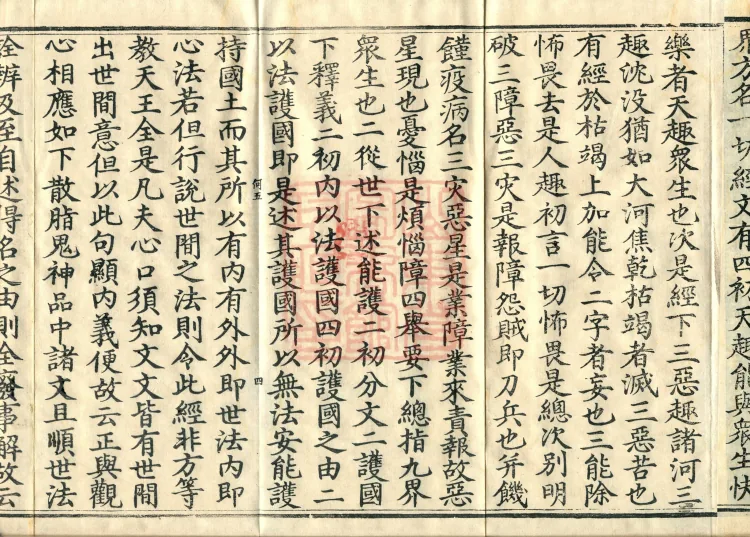 界方名一切經文有四初天趣能與衆生快
樂者天趣衆生也次是經下三惡趣諸河三
趣沈没猶如大河焦乾枯竭者滅三惡苦也
有經於枯竭上加能令二字者妄也三能除
怖畏去是人趣初言一切怖畏是總次別明
破三障惡三灾是報障怨賊即刀兵也并饑
饉疫病名三灾惡星是業障業來責報故惡
星現也憂惱是煩惱障四舉要下總指九界
衆生也二從世下述能護二初分文二護國
下釋義二初内以法護國四初護國之由二
以法護國即是述其護國所以無法安能護
何五
四
持國土而其所以有内有外外即世法内即
心法若但行說世間之法則令此經非方等
教天王全是凡夫心口須知文文皆有世間
出世間意但以此句顯内義便故云正與觀
心相應如下散脂鬼神品中諸文且順世法
詮辨及至自述得名之由則全廢事解故云